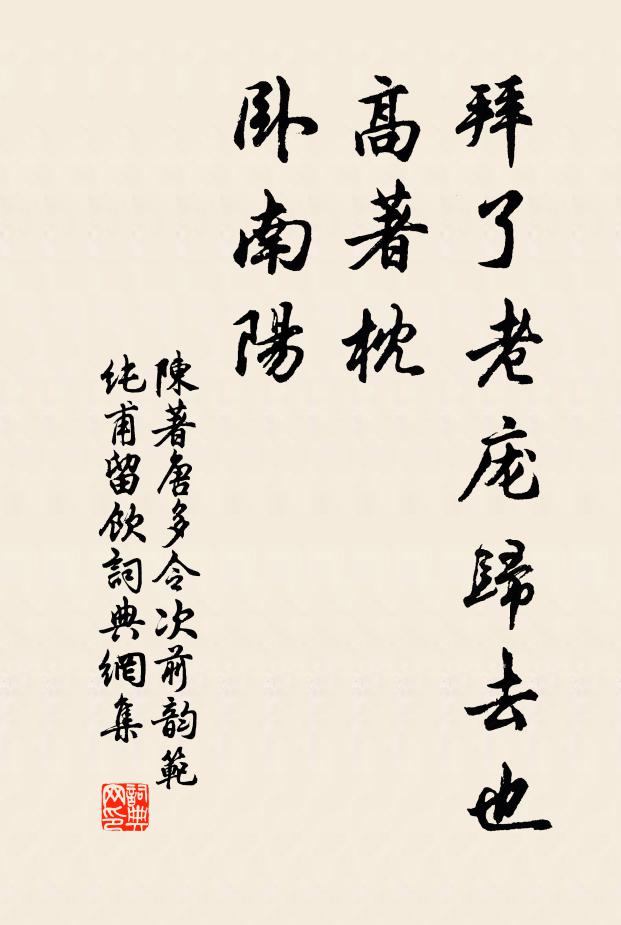 拜了老庞歸去也
高著枕
卧南陽
陳著唐多令次前韵範
纯甫留飲詞典網集
詞典
网印